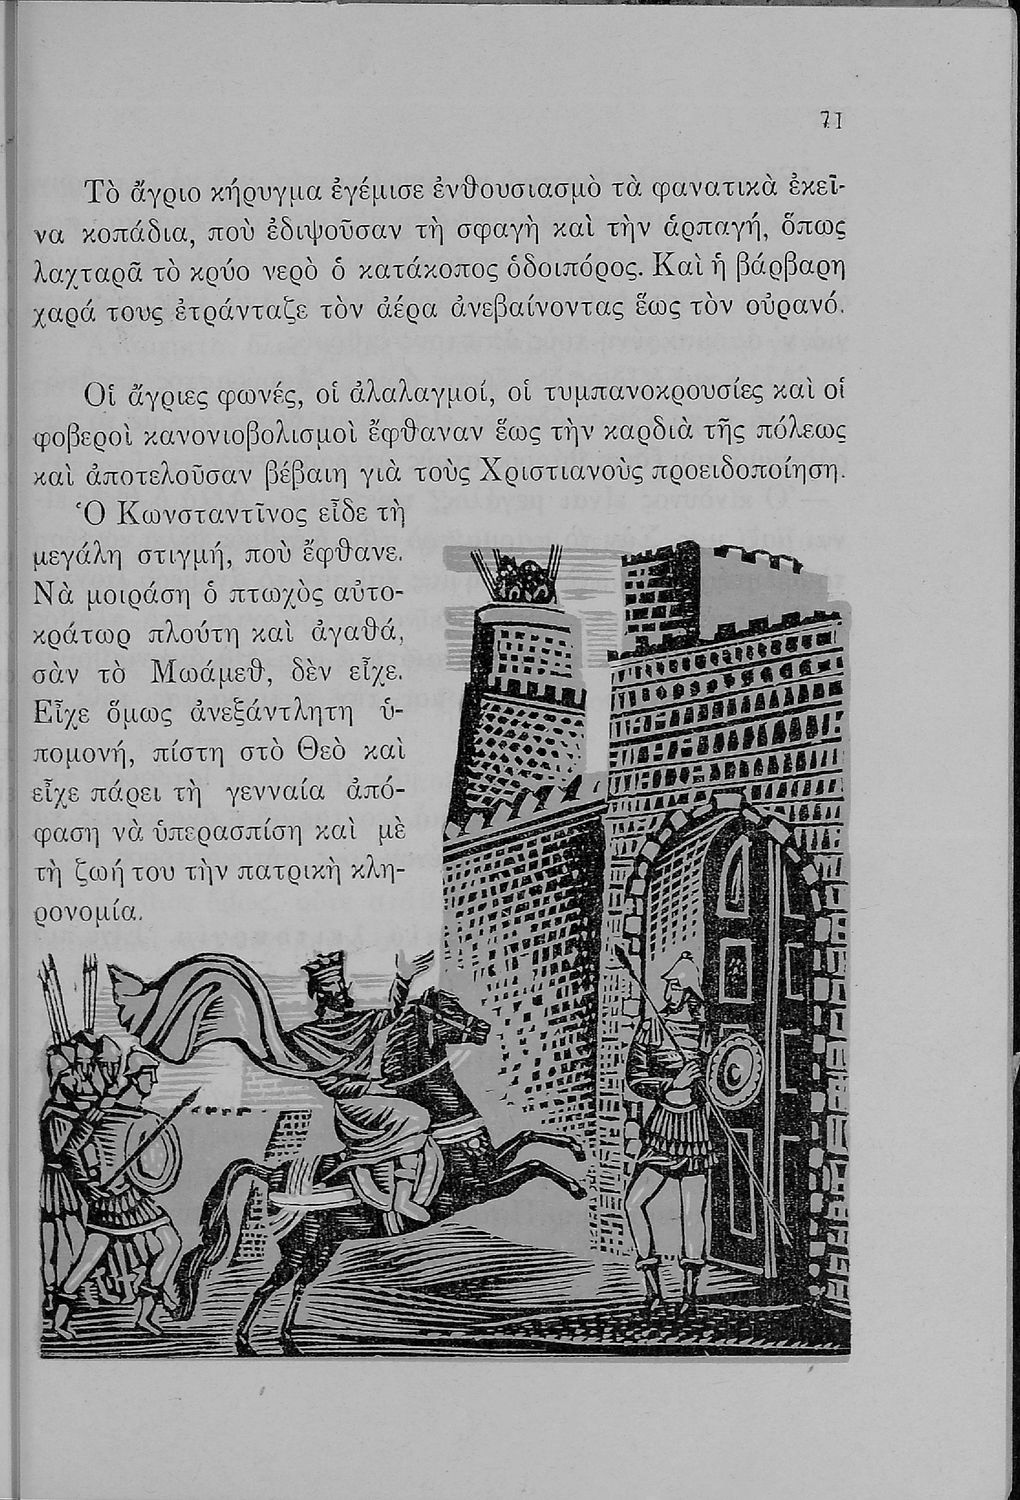 71
Τὸ ἄγριο κήρυγμα ἐγέμισε ἐνθουσιασμὸ τὰ φανατικὰ ἐκεῖ-
να κοπάδια, ποὺ ἐδιψοῦσαν τὴ σφαγὴ καὶ τὴν ἁρπαγή, ὅπως
λαχταρᾶ τὸ κρύο νερὸ ὁ κατάκοπος ὁδοιπόρος. Καὶ ἡ βάρβαρη
χαρά τους ἐτράνταζε τὸν ἀέρα ἀνεβαίνοντας ἕως τὸν οὐρανό.
Οἱ ἄγριες φωνές, οἱ ἀλαλαγμοί, οἱ τυμπανοκρουσίες καὶ οἱ
φοβεροὶ κανονιοβολισμοὶ ἔφθαναν ἕως τὴν καρδιὰ τῆς πόλεως
καὶ ἀποτελοῦσαν βέβαιη γιὰ τοὺς Χριστιανοὺς προειδοποίηση.
Ὁ Κωνσταντῖνος εἶδε τὴ
μεγάλη στιγμή, ποὺ ἔφθανε.
Νὰ μοιράση ὁ πτωχὸς αὐτο-
κράτωρ πλούτη καὶ ἀγαθά,
σὰν τὸ Μωάμεθ, δὲν εἶχε.
Εἶχε ὅμως ἀνεξάντλητη ὑ-
πομονή, πίστη στὸ Θεὸ καὶ
εἶχε πάρει τὴ γενναία ἀπό-
φαση νὰ ὑπερασπίση καὶ μὲ
τὴ ζωή του τὴν πατρικὴ κλη-
ρονομία.